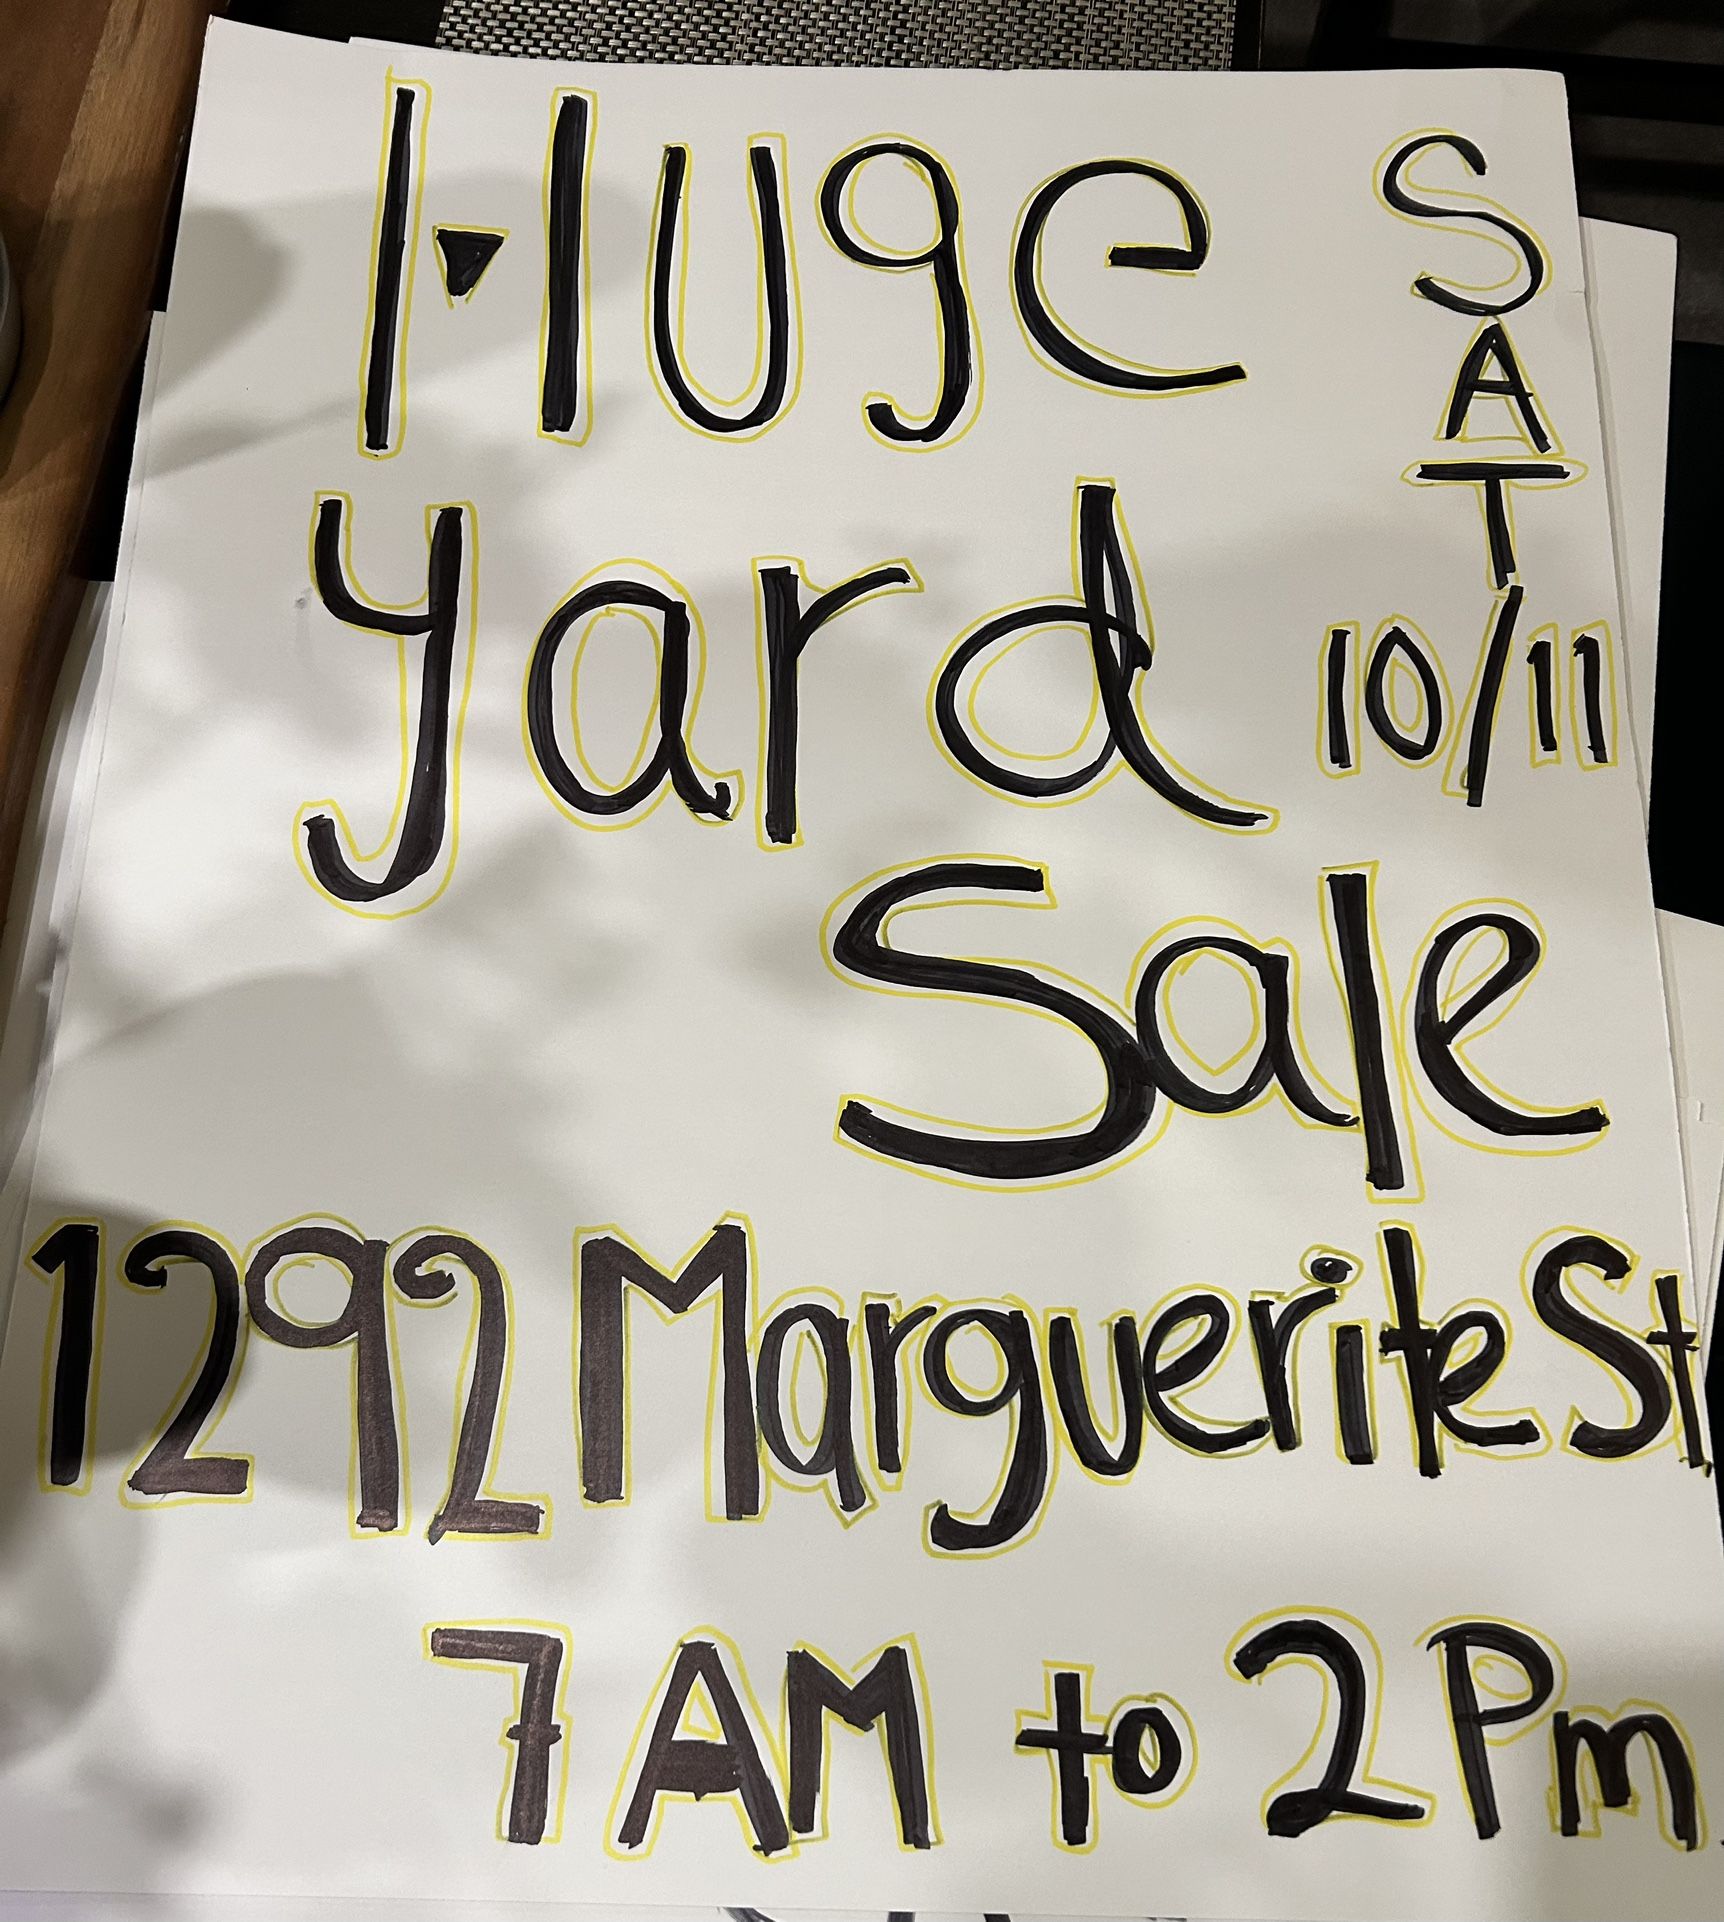 Huge
yard
Sale
SAT
10/11
1292 Marguerite St
7 AM to 2 Pm